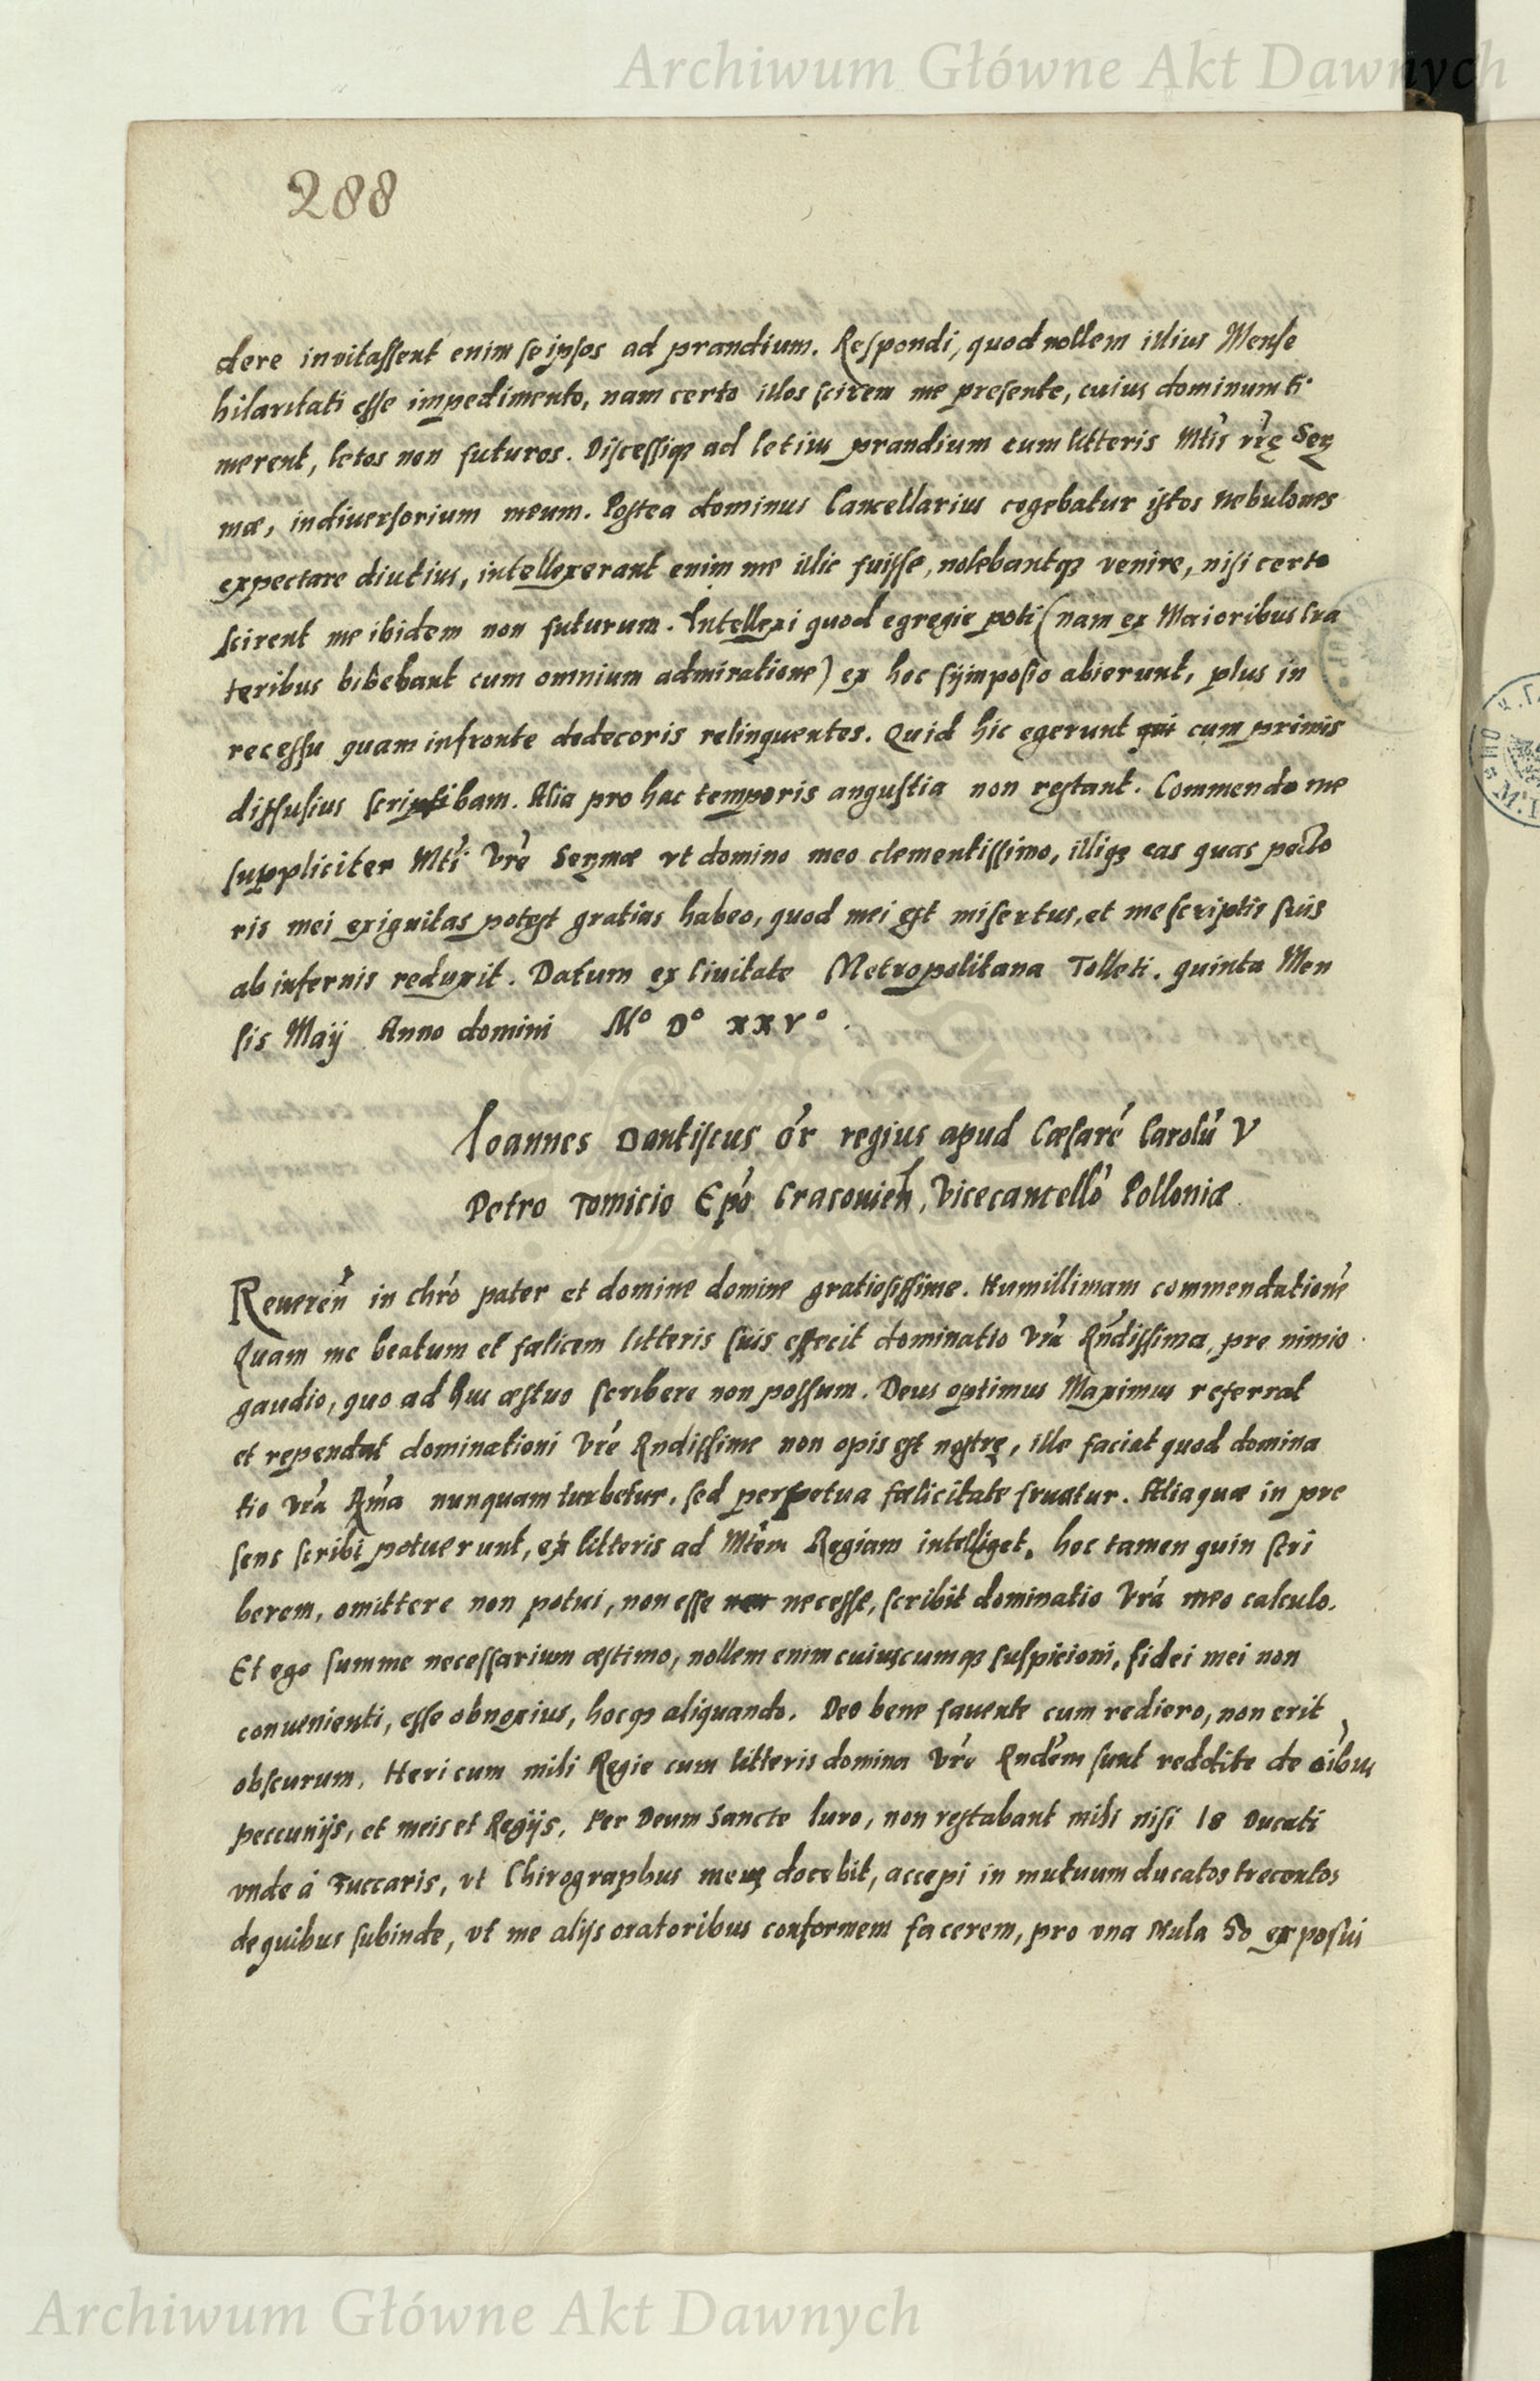 Archiwum Główne Akt Dawnych
288
dere invitassent enim seipsos ad prandium. Respondi, quod nollem illius Mense
hilaritati esse impedimento, nam certo illos scirem me presente, cuius dominum ti
merent, letos non futuros. Discessiq3 ad letius prandium cum litteris Mtis vrę Serᵐ
mæ, in diversorium meum. Postea dominus Cancellarius cogebatur istos Nebulones
expectare diutius, intellexerant enim me illic fuisse, nolebantq3 venire, nisi certo
scirent me ibidem non futurum. Intellexi quod egregie poti (nam ex Maioribus Cra
teribus bibebant cum omnium admiratione) ex hoc sÿmposio abierunt, plus in
recessu quam in fronte dedecoris relinquentes. Quid hic egerunt qui cum primis
diffusius scriptibam. Alia pro hac temporis angustia non restant. Commendo me
suppliciter Mti Vre Serᵐmæ vt domino meo clementissimo, illiq3 eas quas pecto
ris mei exiguitas potest gratias habeo, quod mei est misertus, et me scriptis suis
ab infernis reduxit. Datum ex Civitate Metropolitana Tolleti. quinta Men
sis Maÿ Anno domini M° D° xxv°.
Ioannes Dantiscus or regius apud Cæsare Carolu V
Petro Tomicio Epo Cracovien, Vicecancello Polloniæ
Reveren in chro pater et domine domine gratiosissime. Humillimam commendatione
Quam me beatum et fœlicem litteris suis effecit dominatio Vra Rndissima, pre nimio
gaudio, quo ad huc æstuo scribere non possum. Deus optimus Maximus referrat
et rependat dominationi Vre Rndissime non opis est nostrę, ille faciat quod domina
tio Vra Rma nunquam turbetur, sed perpetua fœlicitate fruatur. Alia quæ in pre
sens scribi potuerunt, ex litteris ad Mtem Regiam intelliget. hoc tamen quin scri
berem, omittere non potui, non esse necesse, scribit dominatio Vra meo calculo.
Et ego summe necessarium æstimo, nollem enim cuiuscumq3 suspicioni, fidei mei non
convenienti, esse obnoxius, hocq3 aliquando. Deo bene favente cum rediero, non erit
obscurum. Heri cum mihi Regie cum litteris domina Vre Rndem sunt reddite de oibus
peccunijs, et meis et Regijs. Per Deum Sancte Iuro, non restabant mihi nisi 18 Ducati
vnde á Fuccaris, vt Chirographus meus docebit, accepi in mutuum ducatos trecentos
de quibus subinde, vt me alijs oratoribus conformem facerem, pro vna Mula 50 exposui
Archiwum Główne Akt Dawnych